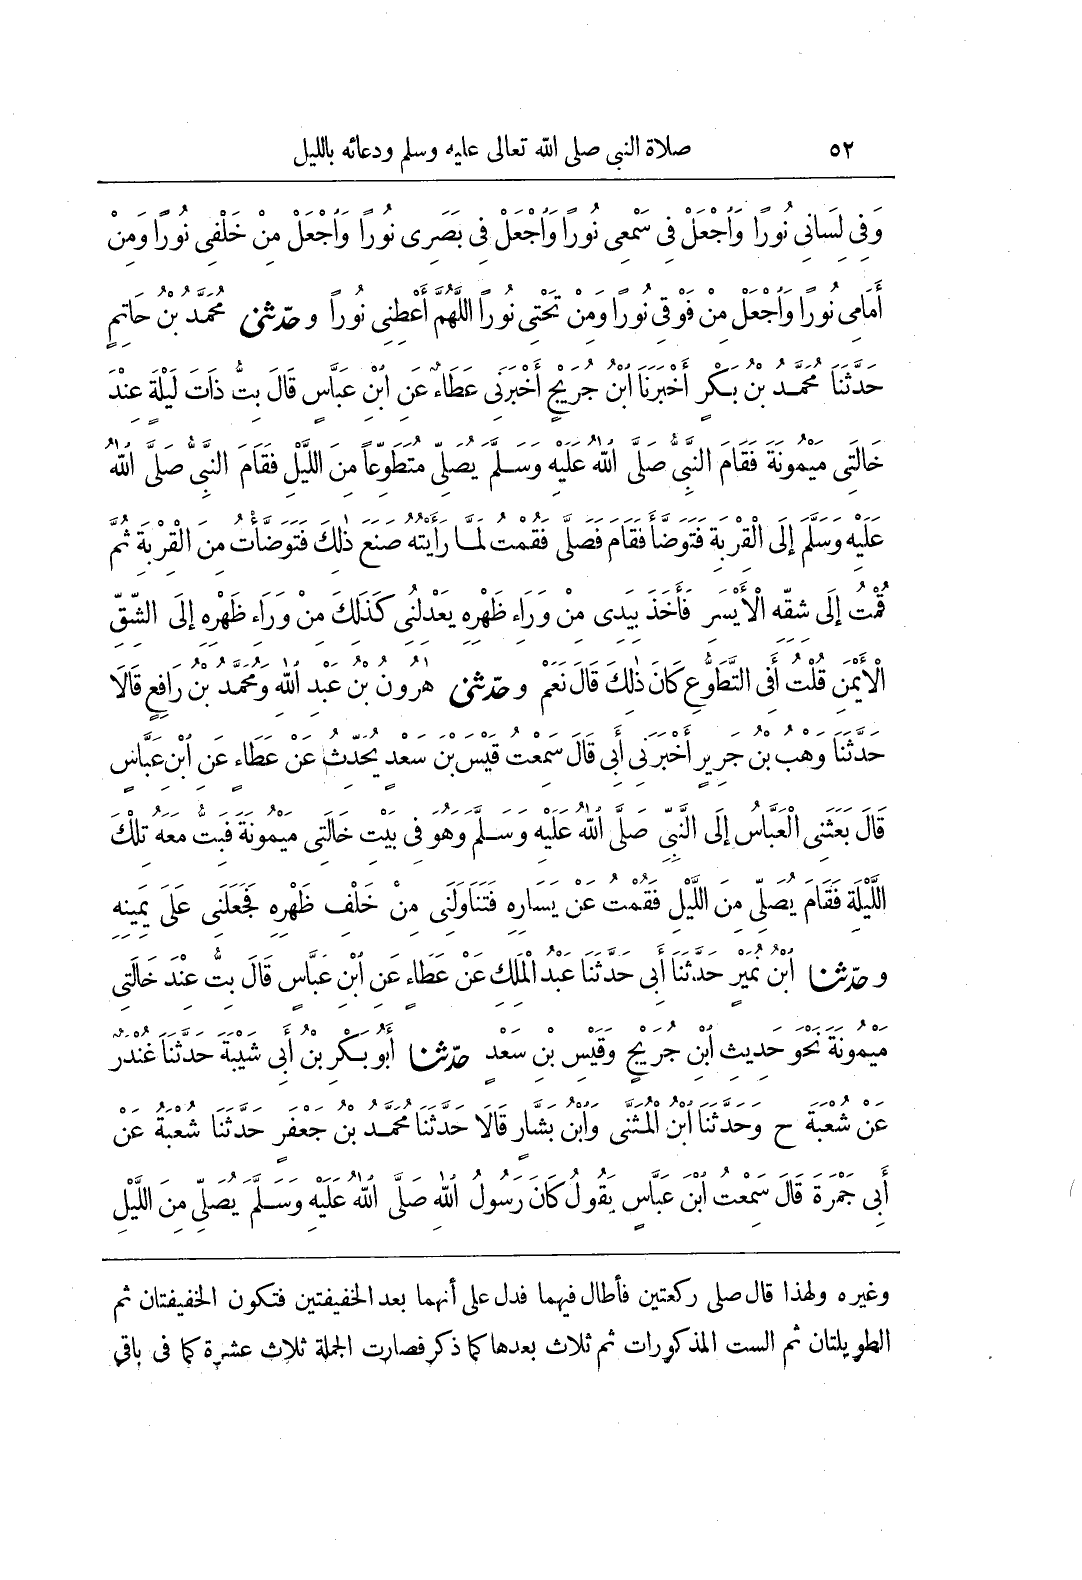 ٥٢ صلاة النبى صلى الله تعالى عليه وسلم ودعائه بالليل
وَفِى لِسَانِى نُورًا وَاجْعَلْ فِى سَمْعِى نُورًا وَاجْعَلْ فِى بَصَرِى نُورًا وَاجْعَلْ مِنْ خَلْفِى نُورًا وَمِنْ
أَمَامِى نُورًا وَاجْعَلْ مِنْ فَوْقِى نُورًا وَمِنْ تَحْتِى نُورًا اللَّهُمَّ أَعْطِنِى نُورًا و حدّثنى مُحَمَّدُ بْنُ حَاتِمٍ
حَدَّثَنَا مُحَمَّدُ بْنُ بَكْرٍ أَخْبَرَنَا ابْنُ جُرَيْجٍ أَخْبَرَنِى عَطَاءٌ عَنِ ابْنِ عَبَّاسٍ قَالَ بِتُّ ذَاتَ لَيْلَةٍ عِنْدَ
خَالَتِى مَيْمُونَةَ فَقَامَ النَّبِىُّ صَلَّى اللهُ عَلَيْهِ وَسَلَّمَ يُصَلِّى مُتَطَوِّعًا مِنَ اللَّيْلِ فَقَامَ النَّبِىُّ صَلَّى اللهُ
عَلَيْهِ وَسَلَّمَ إِلَى الْقِرْبَةِ فَتَوَضَّأَ فَقَامَ فَصَلَّى فَقُمْتُ لَمَّا رَأَيْتُهُ صَنَعَ ذٰلِكَ فَتَوَضَّأْتُ مِنَ الْقِرْبَةِ ثُمَّ
قُمْتُ إِلَى شِقِّهِ الْأَيْسَرِ فَأَخَذَ بِيَدِى مِنْ وَرَاءِ ظَهْرِهِ يَعْدِلُنِى كَذَلِكَ مِنْ وَرَاءِ ظَهْرِهِ إِلَى الشِّقِّ
الْأَيْمَنِ قُلْتُ أَفِى التَّطَوُّعِ كَانَ ذٰلِكَ قَالَ نَعَمْ و حدّثنى هٰرُونُ بْنُ عَبْدِ اللهِ وَمُحَمَّدُ بْنُ رَافِعٍ قَالَا
حَدَّثَنَا وَهْبُ بْنُ جَرِيرٍ أَخْبَرَنِى أَبِى قَالَ سَمِعْتُ قَيْسَ بْنَ سَعْدٍ يُحَدِّثُ عَنْ عَطَاءٍ عَنِ ابْنِ عَبَّاسٍ
قَالَ بَعَثَنِى الْعَبَّاسُ إِلَى النَّبِىِّ صَلَّى اللهُ عَلَيْهِ وَسَلَّمَ وَهُوَ فِى بَيْتِ خَالَتِى مَيْمُونَةَ فَبِتُّ مَعَهُ تِلْكَ
اللَّيْلَةَ فَقَامَ يُصَلِّى مِنَ اللَّيْلِ فَقُمْتُ عَنْ يَسَارِهِ فَتَنَاوَلَنِى مِنْ خَلْفِ ظَهْرِهِ فَجَعَلَنِى عَلَى يَمِينِهِ
و حدّثنا ابْنُ نُمَيْرٍ حَدَّثَنَا أَبِى حَدَّثَنَا عَبْدُ الْمَلِكِ عَنْ عَطَاءٍ عَنِ ابْنِ عَبَّاسٍ قَالَ بِتُّ عِنْدَ خَالَتِى
مَيْمُونَةَ نَحْوَ حَدِيثِ ابْنِ جُرَيْجٍ وَقَيْسِ بْنِ سَعْدٍ حدّثنا أَبُو بَكْرِ بْنُ أَبِى شَيْبَةَ حَدَّثَنَا غُنْدَرٌ
عَنْ شُعْبَةَ ح وَحَدَّثَنَا ابْنُ الْمُثَنَّى وَابْنُ بَشَّارٍ قَالَا حَدَّثَنَا مُحَمَّدُ بْنُ جَعْفَرٍ حَدَّثَنَا شُعْبَةُ عَنْ
أَبِى جَمْرَةَ قَالَ سَمِعْتُ ابْنَ عَبَّاسٍ يَقُولُ كَانَ رَسُولُ اللهِ صَلَّى اللهُ عَلَيْهِ وَسَلَّمَ يُصَلِّى مِنَ اللَّيْلِ
وغيره ولهذا قال صلى ركعتين فأطال فيهما فدل على أنهما بعد الخفيفتين فتكون الخفيفتان ثم
الطويلتان ثم الست المذكورات ثم ثلاث بعدها كما ذكر فصارت الجملة ثلاث عشرة كما فى باقى